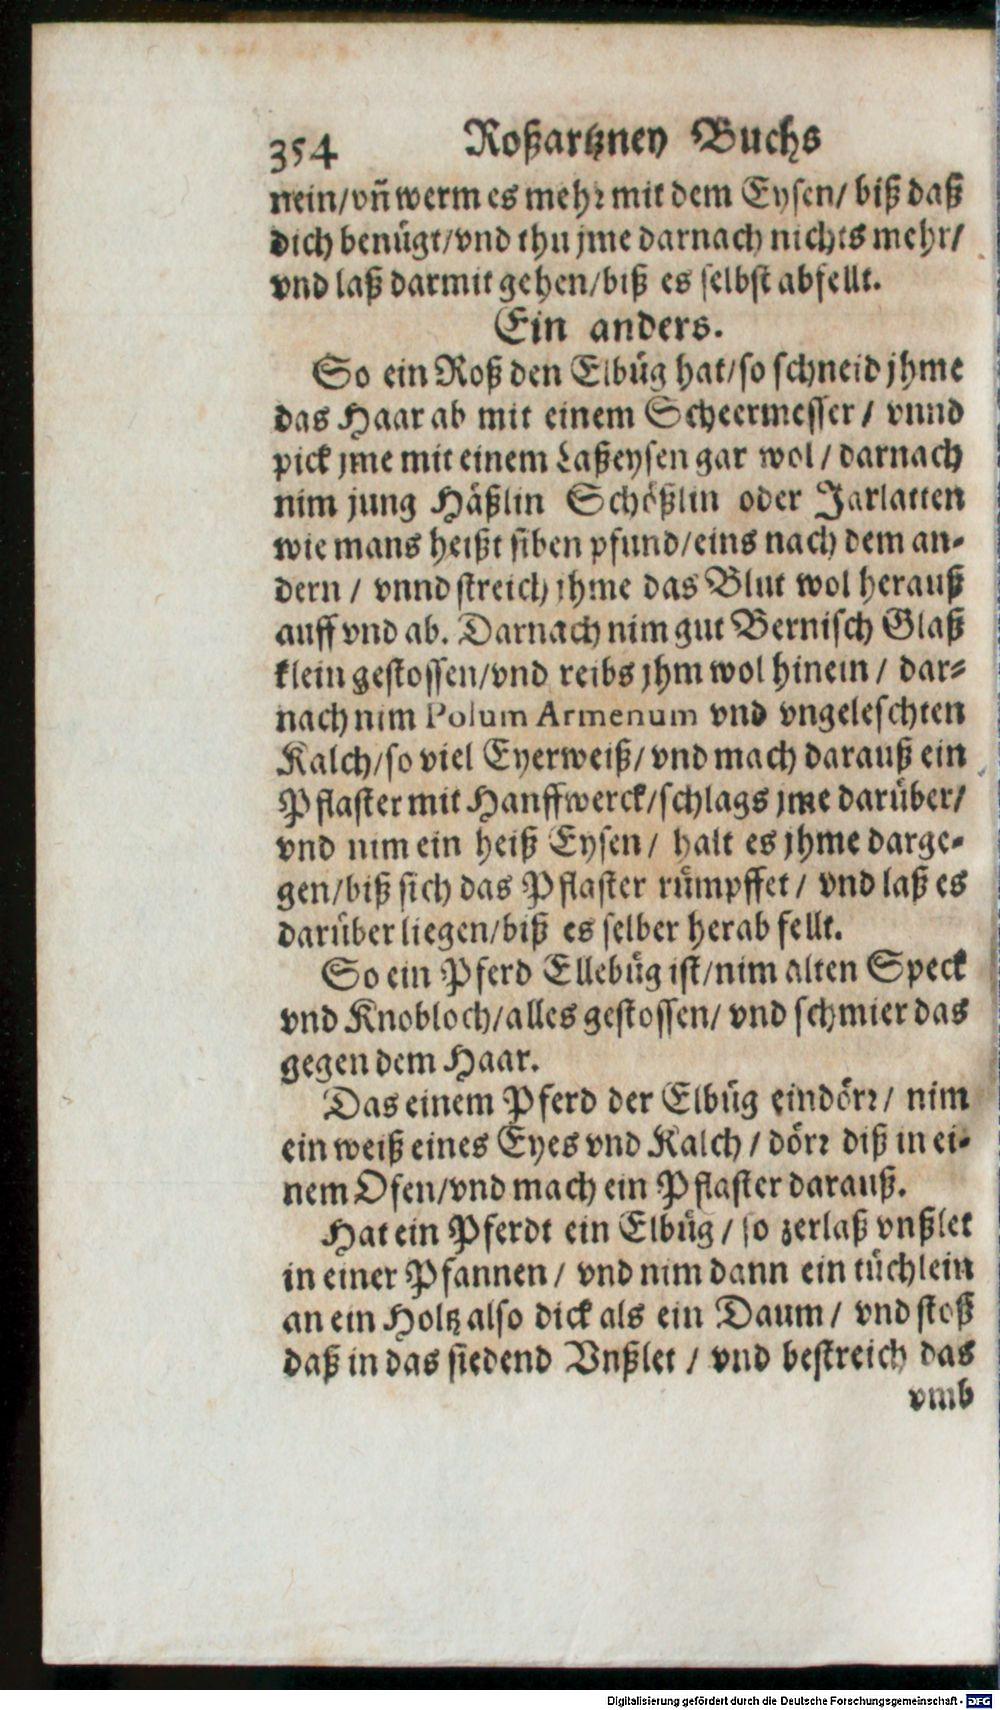 354 Roßartzney Buchs
nein/vñ werm es mehr mit dem Eysen/ biß daß
dich benügt/vnd thu jme darnach nichts mehr/
vnd laß darmit gehen/biß es selbst abfellt.
Ein anders.
So ein Roß den Elbüg hat/so schneid jhme
das Haar ab mit einem Scheermesser / vnnd
pick jme mit einem Laßeysen gar wol / darnach
nim jung Häßlin Schößlin oder Jarlatten
wie mans heißt siben pfund/eins nach dem an-
dern / vnnd streich jhme das Blut wol herauß
auff vnd ab. Darnach nim gut Vernisch Glaß
klein gestossen/vnd reibs jhm wol hinein / dar-
nach nim Polum Armenum vnd vngeleschten
Kalch/so viel Eyerweiß/vnd mach darauß ein
Pflaster mit Hanffwerck/schlags jme darüber/
vnd nim ein heiß Eysen / halt es jhme darge-
gen/biß sich das Pflaster rümpffet / vnd laß es
darüber liegen/biß es selber herab fellt.
So ein Pferd Ellebüg ist/nim alten Speck
vnd Knobloch/alles gestossen/ vnd schmier das
gegen dem Haar.
Das einem Pferd der Elbüg eindörr/ nim
ein weiß eines Eyes vnd Kalch / dörr diß in ei-
nem Ofen/vnd mach ein Pflaster darauß.
Hat ein Pferdt ein Elbüg / so zerlaß vnßlet
in einer Pfannen / vnd nim dann ein tüchlein
an ein Holtz also dick als ein Daum / vnd stoß
daß in das siedend Vnßlet / vnd bestreich das
vmb
Digitalisierung gefördert durch die Deutsche Forschungsgemeinschaft - DFG